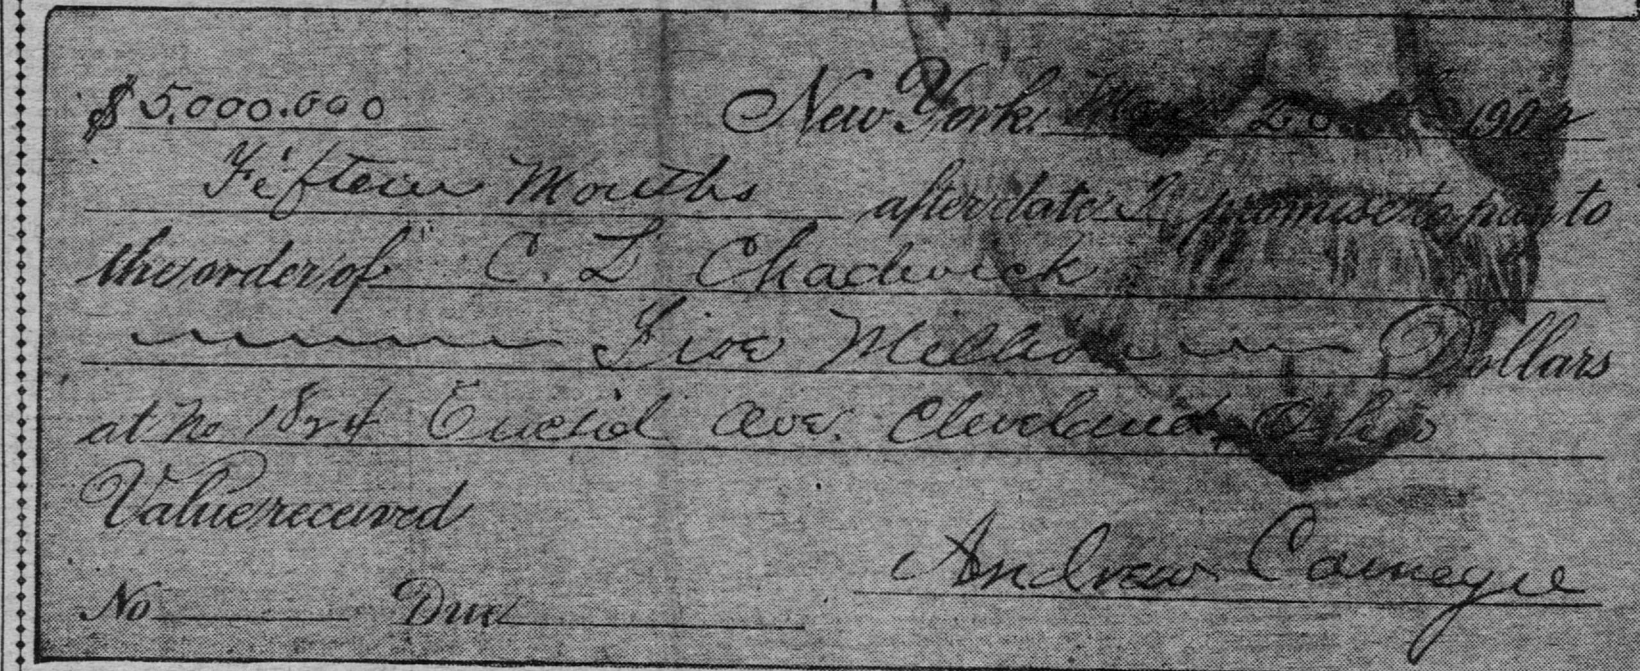 $ 5,000.000
New York. May 20 1902
Fifteen Months after date I promise to pay to
the order of C. L Chadwick
Five Million Dollars
at No 1824 Euclid Ave. Cleveland, Ohio
Value received
Andrew Carnegie
No Due